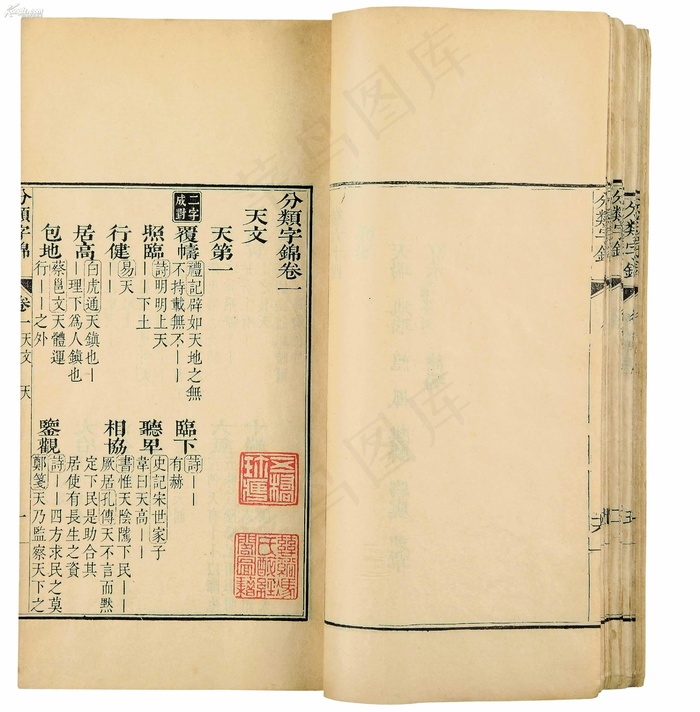 分類字錦卷一
天文
天第一
二字成對
覆幬 禮記辟如天地之無不持載無不｜｜
臨下 詩｜｜有赫
照臨 詩明明上天｜｜下土
聽卑 史記宋世家子韋曰天高｜｜
行健 易天｜｜
相協 書惟天陰隲下民｜｜厥居孔傳天不言而默定下民是助合其居使有長生之資
居高 白虎通天鎮也｜｜理下為人鎮也
包地 蔡邕天文體運行｜｜之外
鑒觀 詩｜｜四方求民之莫鄭箋天乃監察天下之
分類字錦
卷一 天文 天
一
分類字錦
分類字錦
分類字錦